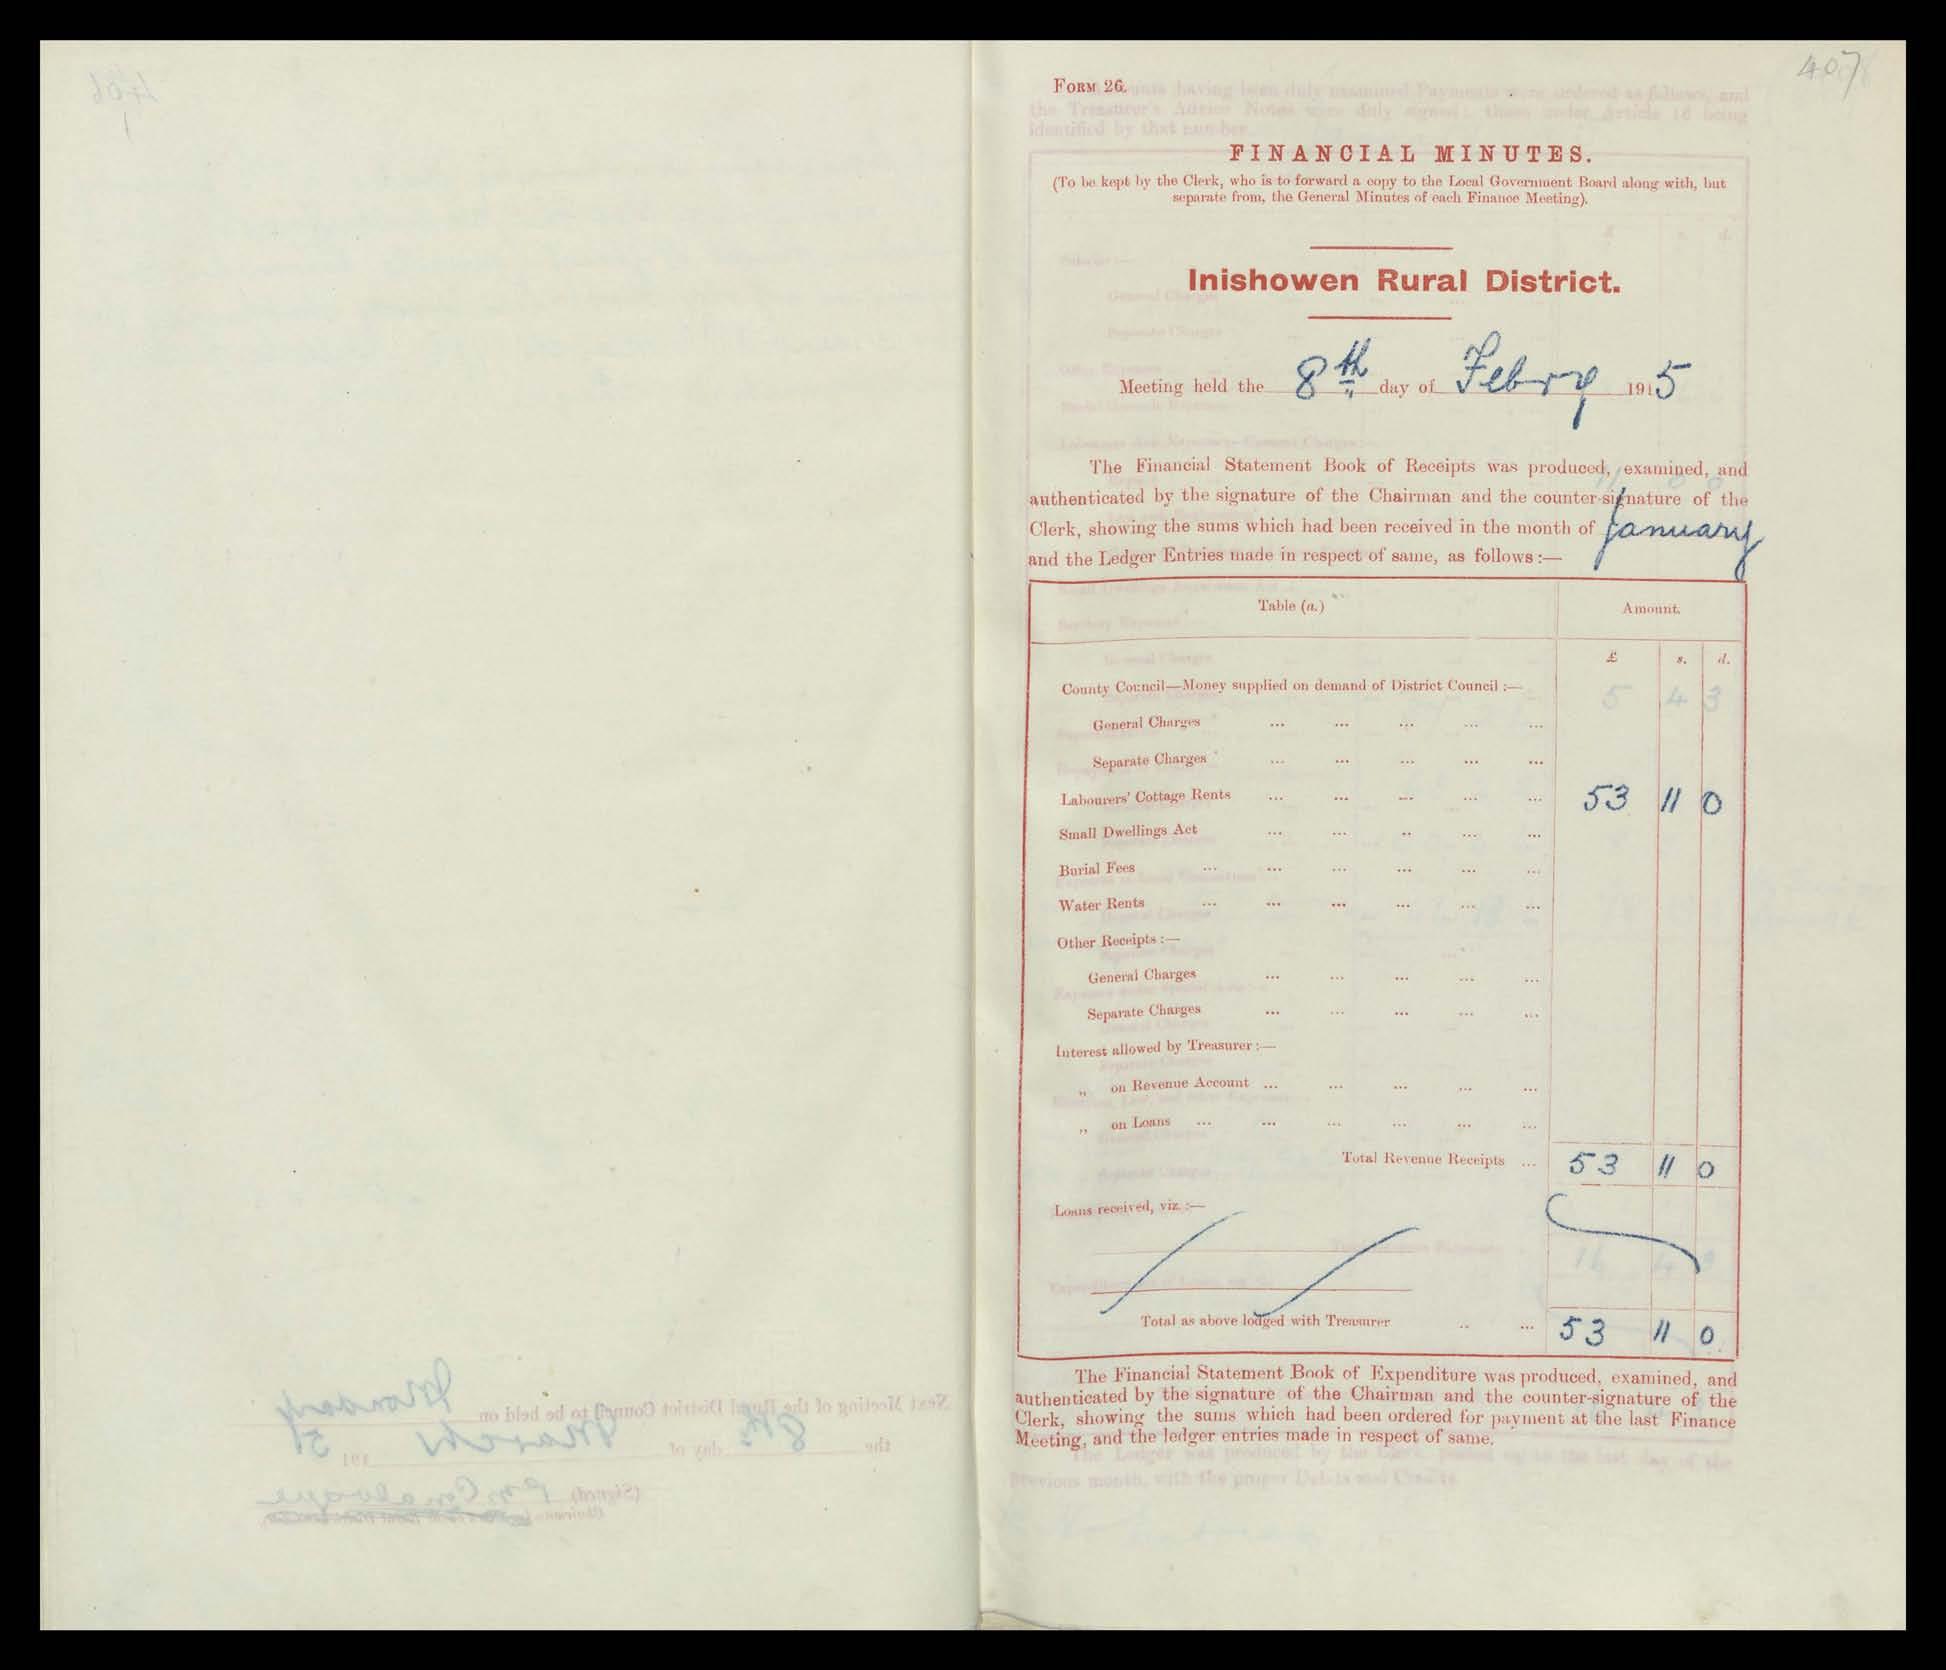 407
FORM 26.
FINANCIAL MINUTES.
(To be kept by the Clerk, who is to forward a copy to the Local Government Board along with, but
separate from, the General Minutes of each Finance Meeting).
Inishowen Rural District.
Meeting held the 8th day of Febry 1915
The Financial Statement Book of Receipts was produced, examined, and
authenticated by the signature of the Chairman and the counter-signature of the
Clerk, showing the sums which had been received in the month of January
and the Ledger Entries made in respect of same, as follows :—
Table (a.) Amount.
£ s. d.
County Council—Money supplied on demand of District Council :—
General Charges ... ... ... ... ...
Separate Charges ... ... ... ... ...
Labourers' Cottage Rents ... ... ... ... ... 53 11 0
Small Dwellings Act ... ... .. ... ...
Burial Fees ... ... ... ... ... ...
Water Rents ... ... ... ... ... ...
Other Receipts :—
General Charges ... ... ... ... ...
Separate Charges ... ... ... ... ...
Interest allowed by Treasurer :—
„ on Revenue Account ... ... ... ... ...
„ on Loans ... ... ... ... ... ...
Total Revenue Receipts ... 53 11 0
Loans received, viz. :—
Total as above lodged with Treasurer .. ... 53 11 0
The Financial Statement Book of Expenditure was produced, examined, and
authenticated by the signature of the Chairman and the counter-signature of the
Clerk, showing the sums which had been ordered for payment at the last Finance
Meeting, and the ledger entries made in respect of same.